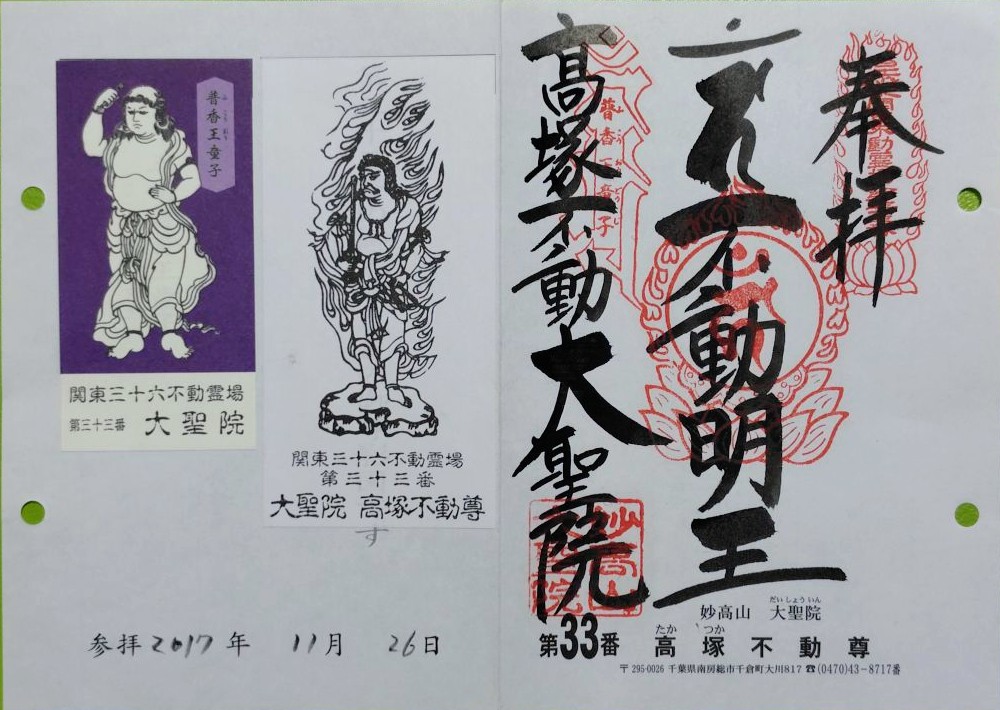 普香王童子
ふ こう おう
関東三十六不動霊場
第三十三番 大聖院
関東三十六不動霊場
第三十三番
大聖院 高塚不動尊
す
参拝2017年 11月 26日
奉拝
不動明王
高塚不動 大聖院
普香王童子
妙高山 大聖院
だいしょういん
第33番 高塚不動尊
たか つか
〒295-0026 千葉県南房総市千倉町大川817 ☎(0470)43-8717番